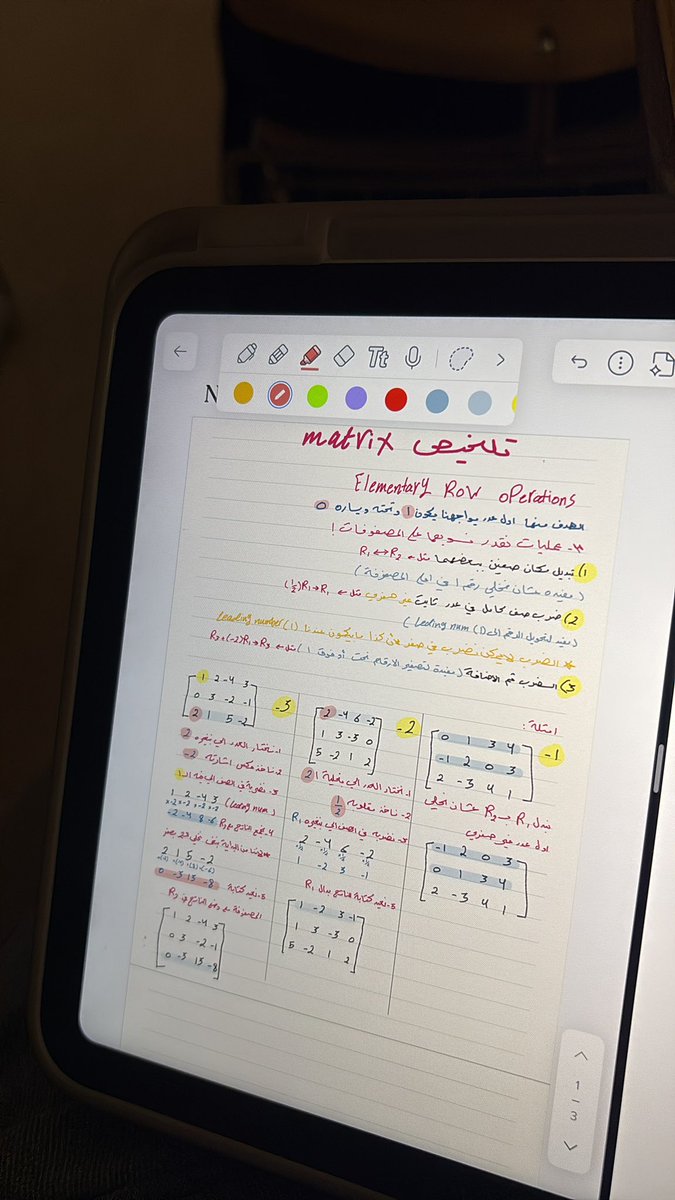 Tt
N
تلخيص matrix
Elementary Row operations
الهدف منها اول عدد يواجهنا يكون 1 وتحته ويساره 0
3- عمليات نقدر نسويها على المصفوفات !
1) تبديل مكان صفين ببعضهما مثل ← R₁ ↔ R₂
( مفيده عشان نخلي رقم 1 في اعلى المصفوفة )
2) ضرب صف كامل في عدد ثابت غير صفري مثل ← (½)R₁→R₁
(مفيد لتحويل الرقم الى (1) leading num)
* الضرب لايمكن نضرب في صفر لان كذا مايكون عندنا (1) leading number
3) الضرب ثم الاضافة (مفيدة لتصفير الارقام تحت أو فوق 1) مثل ← R₃+(-2)R₁→R₃
امثلة :
-1
0 1 3 4
-1 2 0 3
2 -3 4 1
نبدل R₁ و R₂ عشان نخلي
اول عدد غير صفري
-1 2 0 3
0 1 3 4
2 -3 4 1
-2
2 -4 6 -2
1 3 -3 0
5 -2 1 2
1- نختار العدد الي بنخليه 1 2
2- ناخذ مقلوبه ½
3- نضربه في الصف الي بنغيره R₁
2 -4 6 -2
×½ ×½ ×½ ×½
1 -2 3 -1
5- نعيد كتابة الناتج بدال R₁
1 -2 3 -1
1 3 -3 0
5 -2 1 2
-3
1 2 -4 3
0 3 -2 -1
2 1 5 -2
1- نختار العدد الي بنغيره 2
2- ناخذ عكس اشارته -2
3- نضربه في الصف الي فيه الـ 1
(leading num)
1 2 -4 3
×-2 ×-2 ×-2 ×-2
-2 -4 8 -6
4- نجمع الناتج مع R₃
2 1 5 -2
+(-2) +(-4) +(8) +(-6)
0 -3 13 -8
5- نعيد كتابة
المصفوفة مع وضع الناتج في R₃
1 2 -4 3
0 3 -2 -1
0 -3 13 -8
1
3